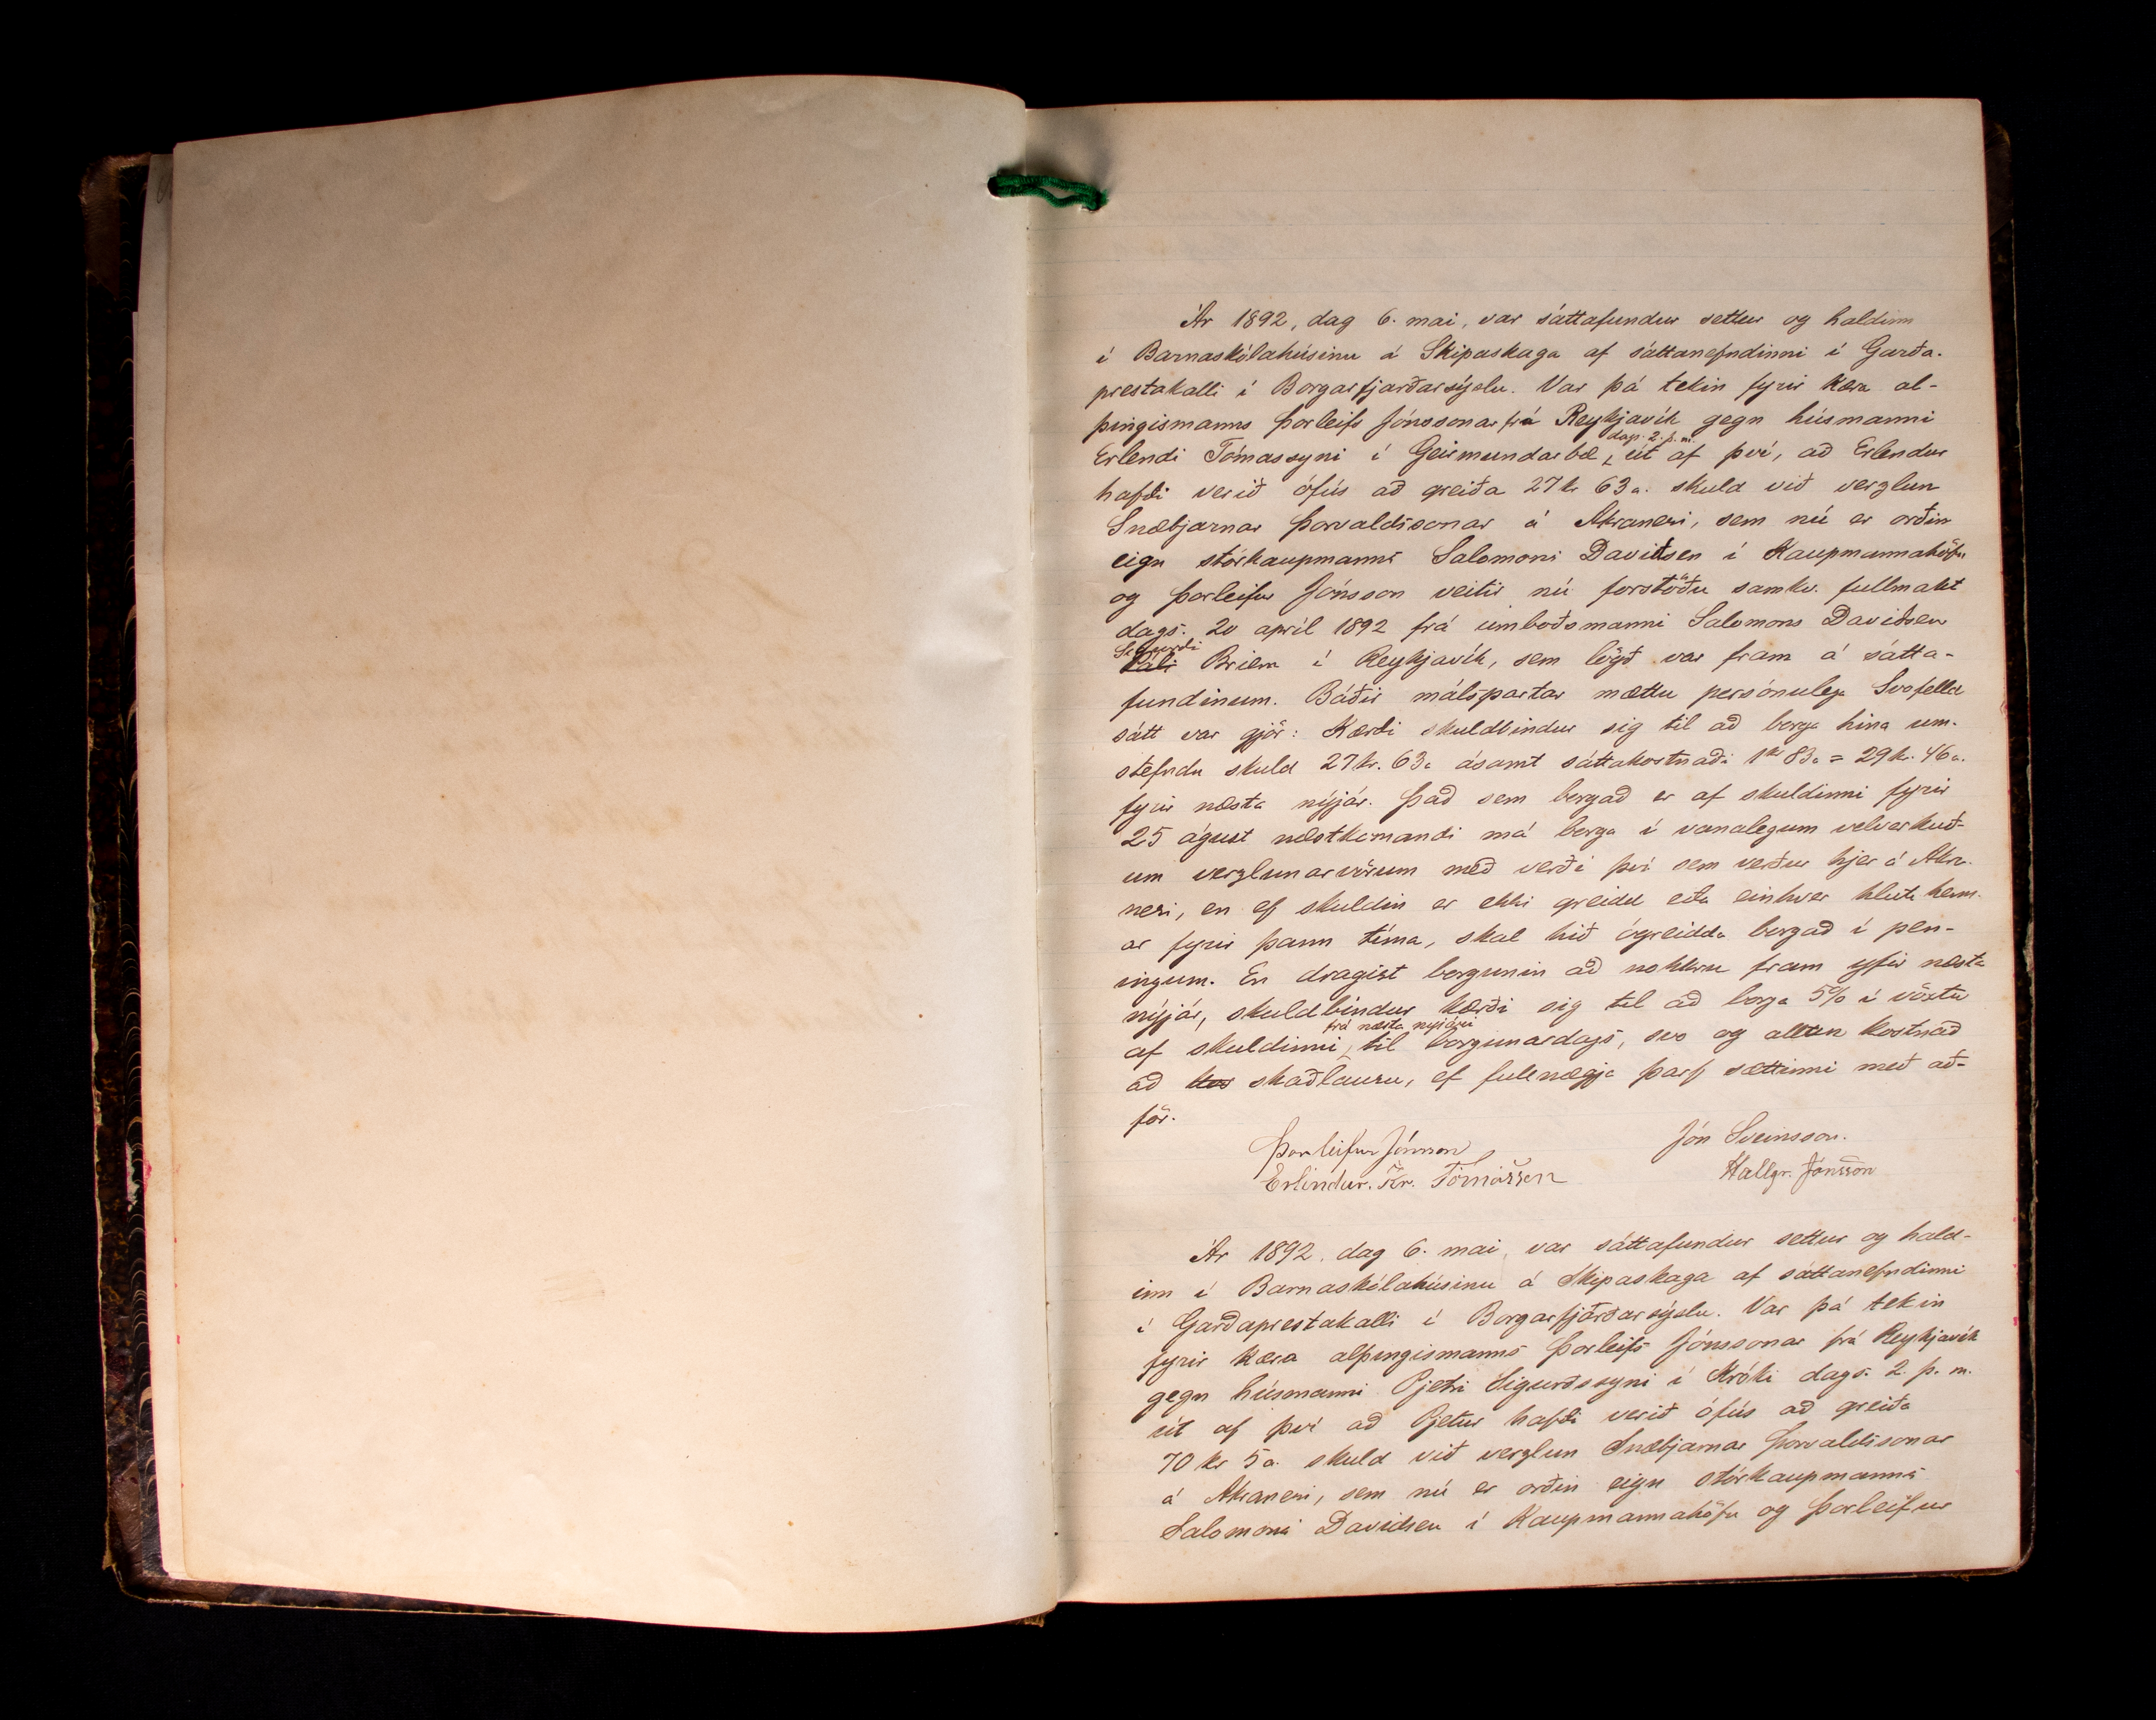 Ár 1892, dag 6. mai, var sáttafundur settur og haldinn
í Barnaskólahúsinu á Skipaskaga af sáttanefndinni í Garða-
prestakalli í Borgarfjarðarsýslu. Var þá tekin fyrir kæra al-
þingismanns Þorleifs Jónssonar frá Reykjavík gegn húsmanni
dags. 2. þ. m.
Erlendi Tómassyni í Geirmundarbæ, út af því, að Erlendur
hafði verið ófús að greiða 27 kr 63 a. skuld við verzlun
Snæbjarnar Þorvaldssonar á Akranesi, sem nú er orðin
eign stórkaupmanns Salomons Davidsen í Kaupmannahöfn
og Þorleifur Jónsson veitir nú forstöðu samkv. fullmakt
dags. 20 apríl 1892 frá umboðsmanni Salomons Davidsen
Sigurði
Páli Briem í Reykjavík, sem lögð var fram á sátta-
fundinum. Báðir málspartar mættu persónulega Svofelld
sátt var gjör: Kærði skuldbindur sig til að borga hina um-
stefndu skuld 27 kr. 63 a ásamt sáttakostnaði 1 kr 83 a = 29 kr. 46 a.
fyrir næsta nýjár. Það sem borgað er af skuldinni fyrir
25 ágúst næstkomandi má borga í vanalegum velverkuð-
um verzlunarvörum með verði því sem verður hjer á Akra-
nesi, en ef skuldin er ekki greidd eða einhver hluti henn-
ar fyrir þann tíma, skal hið ógreidda borgað í pen-
ingum. En dragist borgunin að nokkru fram yfir næsta
nýjár, skuldbindur kærði sig til að borga 5% í vöxtu
frá næsta nýjári
af skuldinni til borgunardags, svo og allan kostnað
að skaðlausu, ef fullnægja þarf sættinni með að-
för.
Þorleifur Jónsson
Jón Sveinsson.
Erlindur. Kr. Tómásson
Hallgr. Jónsson
Ár 1892, dag 6. mai, var sáttafundur settur og hald-
inn í Barnaskólahúsinu á Skipaskaga af sáttanefndinni
í Garðaprestakalli í Borgarfjarðarsýslu. Var þá tekin
fyrir kæra alþingismanns Þorleifs Jónssonar frá Reykjavík
gegn húsmanni Pjetri Sigurðssyni í Króki dags. 2. þ. m.
út af því að Pjetur hafði verið ófús að greiða
70 kr 5 a. skuld við verzlun Snæbjarnar Þorvaldssonar
á Akranesi, sem nú er orðin eign stórkaupmanns
Salomons Davidsen í Kaupmannahöfn og Þorleifur